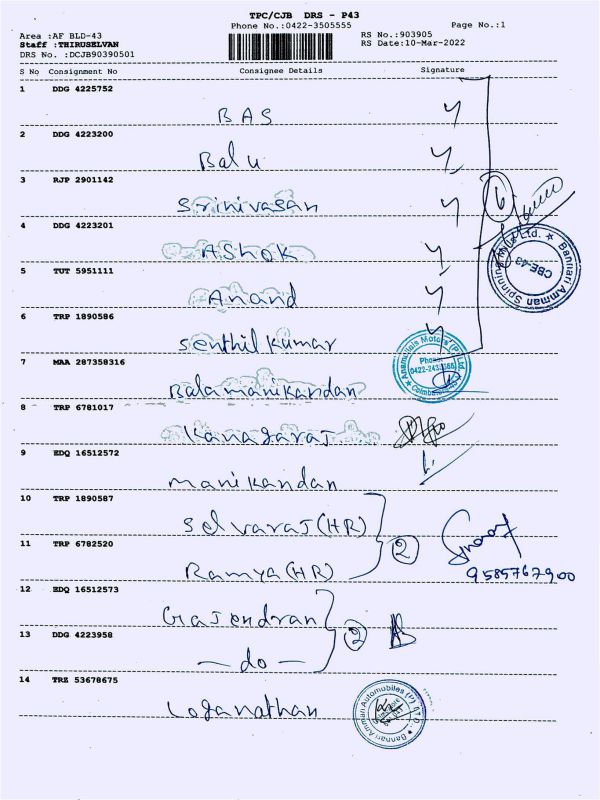 TPC/CJB DRS - P43
Phone No.:0422-3505555
Page No.:1
Area :AF BLD-43
RS No.:903905
Staff :THIRUSELVAN
RS Date:10-Mar-2022
DRS No. :DCJB90390501
S No Consignment No Consignee Details Signature
1 DDG 4225752
BAS
2 DDG 4223200
Balu
3 RJP 2901142
Srinivasan
4 DDG 4223201
Ashok
5 TUT 5951111
Anand
6 TRP 1890586
Senthil Kumar
6
Bannari Amman Spinning Mills Ltd. ★
CBE-43
7 MAA 287358316
Balamanikandan
Anamallais Motors (P) Ltd
Phone
Coimbatore-43
8 TRP 6781017
Kanagaraj
9 EDQ 16512572
Manikandan
10 TRP 1890587
Selvaraj (HR)
11 TRP 6782520
Ramya (HR)
2
9585767900
12 EDQ 16512573
Gajendran
13 DDG 4223958
— do —
2
14 TRZ 53678675
Loganathan
Bannari Amman Automobiles (P) LTD.